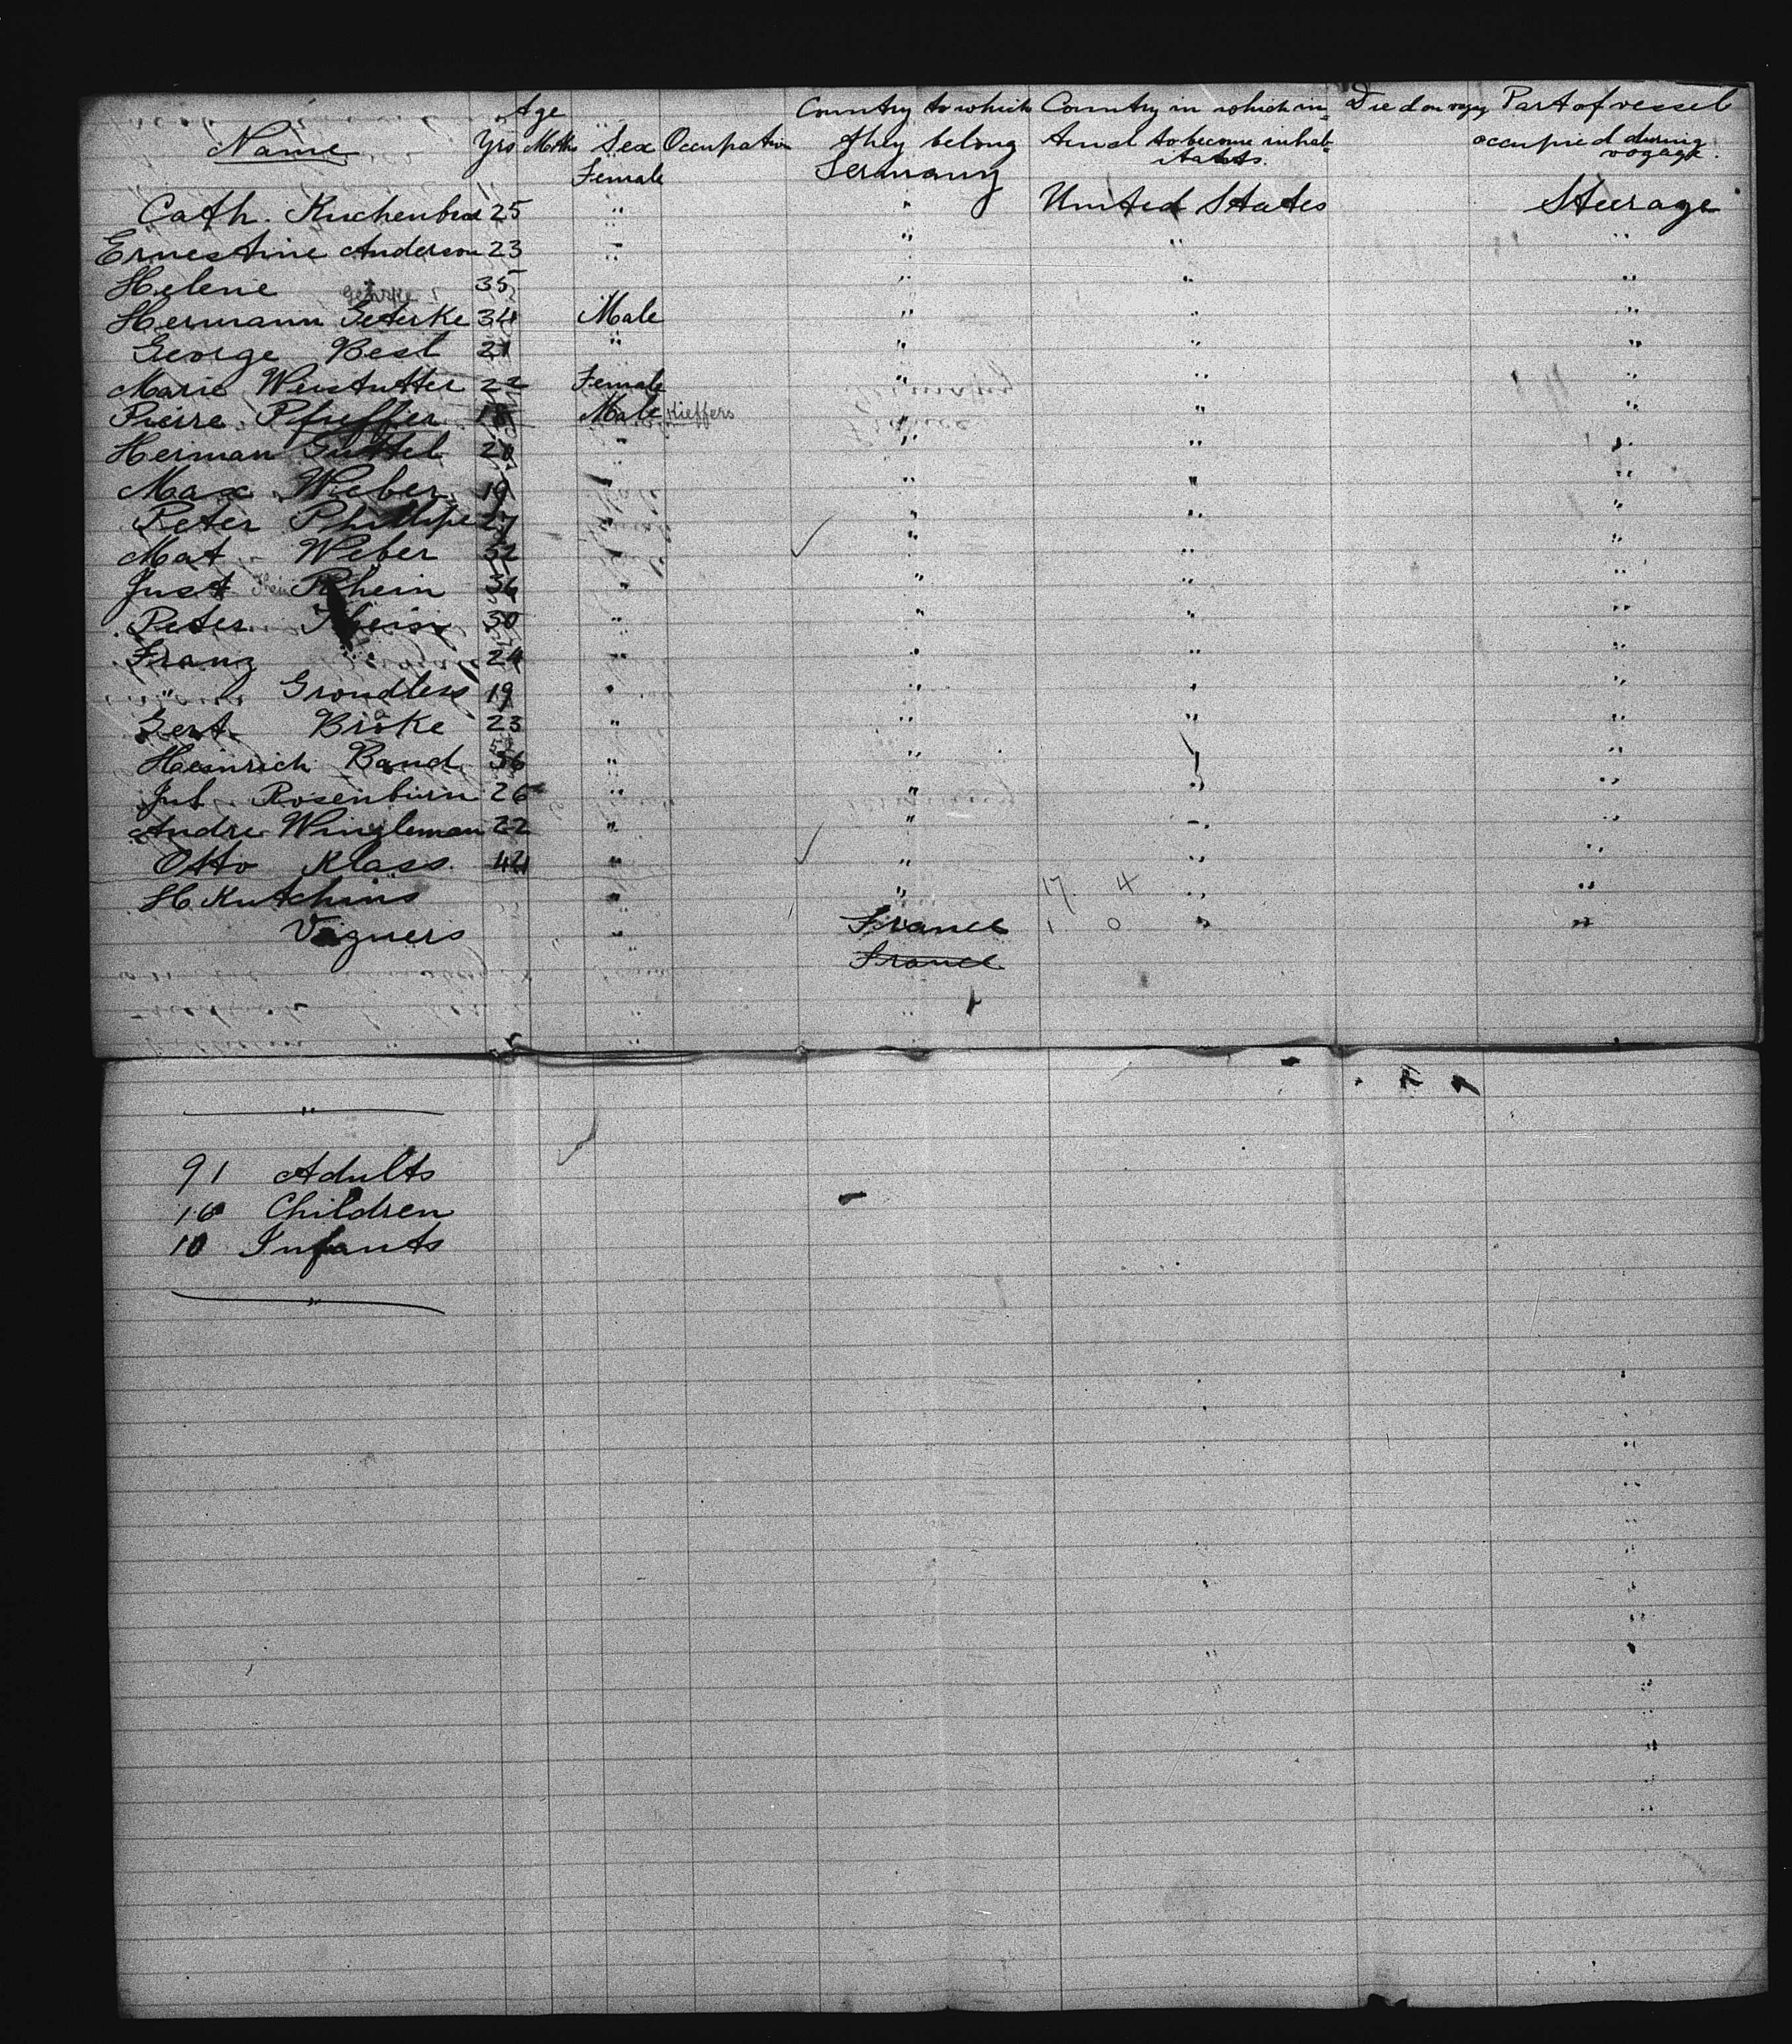 Age Country to which Country in which in- Died on voyg Part of vessel
Name Yrs Mths Sex Occupation they belong tend to become inhab- occupied during
itants. voyage.
Female Germany
Cath. Kuchenbud 25 " " United States Steerage
Ernestine Anderson 23 " " " "
Helene 35 " " "
Gehrke
Hermann Geterke 34 Male " " "
George Best 21 " " " "
Marie Weistutter 22 Female " " "
Pierre Pfieffer 18 Male Kieffers " " "
Herman Guttel 20 " " " "
Max Wieber 19 " " " "
Peter Phillipe 27 " " " "
Mat Weber 32 " " "
Just Rhein 36 " " " "
Peter Theis 30 " " " "
Franz " 24 " " " "
" Grondless 19 " " " "
Gert. Broke 23 " " " "
Heinrich Band 36 " " " "
Jul. Rosenburn 26 " " " "
Andre Wingleman 22 " " " "
Otto Klass. 44 " " " "
H Kutchins " " 17. 4 " "
Vagners " France 1 0 " "
France
"
91 Adults
16 Children
10 Infants
"